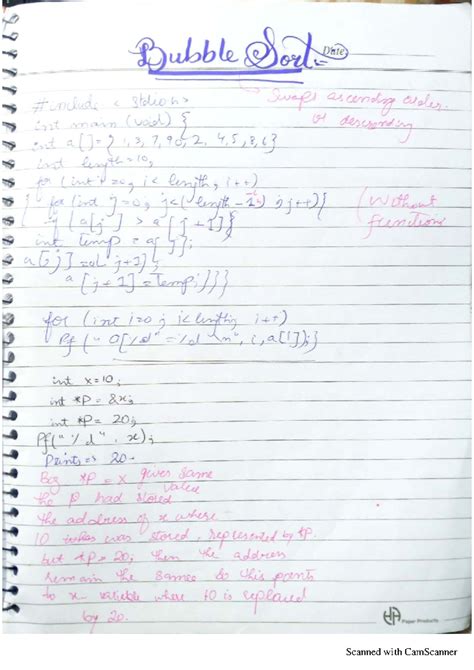 Bubble Sort:-
Date
Swaps ascending order
or descending
#include < stdio.h>
int main (void) {
int a[]={ 1, 3, 7, 9, 0, 2, 4, 5, 8, 6}
int length = 10;
for (int i=0; i< length; i++)
{ for (int j=0; j<( length -1); j++){
(Without
function)
if ( a[j] > a[j+1]{
int temp = a[j];
a[j]=a[j+1];
a[j+1]=temp;}}}
for (int i=0; i<length; i++)
Pf(" [%d" = %d \n", i, a[i]);}
int x=10;
int *P = &x;
int *P = 20;
Pf("%d", x);
Prints => 20
Coz *P = x gives same
value
the P had stored
the address of x where
10 was stored, represented by *P.
but *P = 20; then the address
remain the same so this prints
to x variable where 10 is replaced
by 20.
Paper Products
Scanned with CamScanner